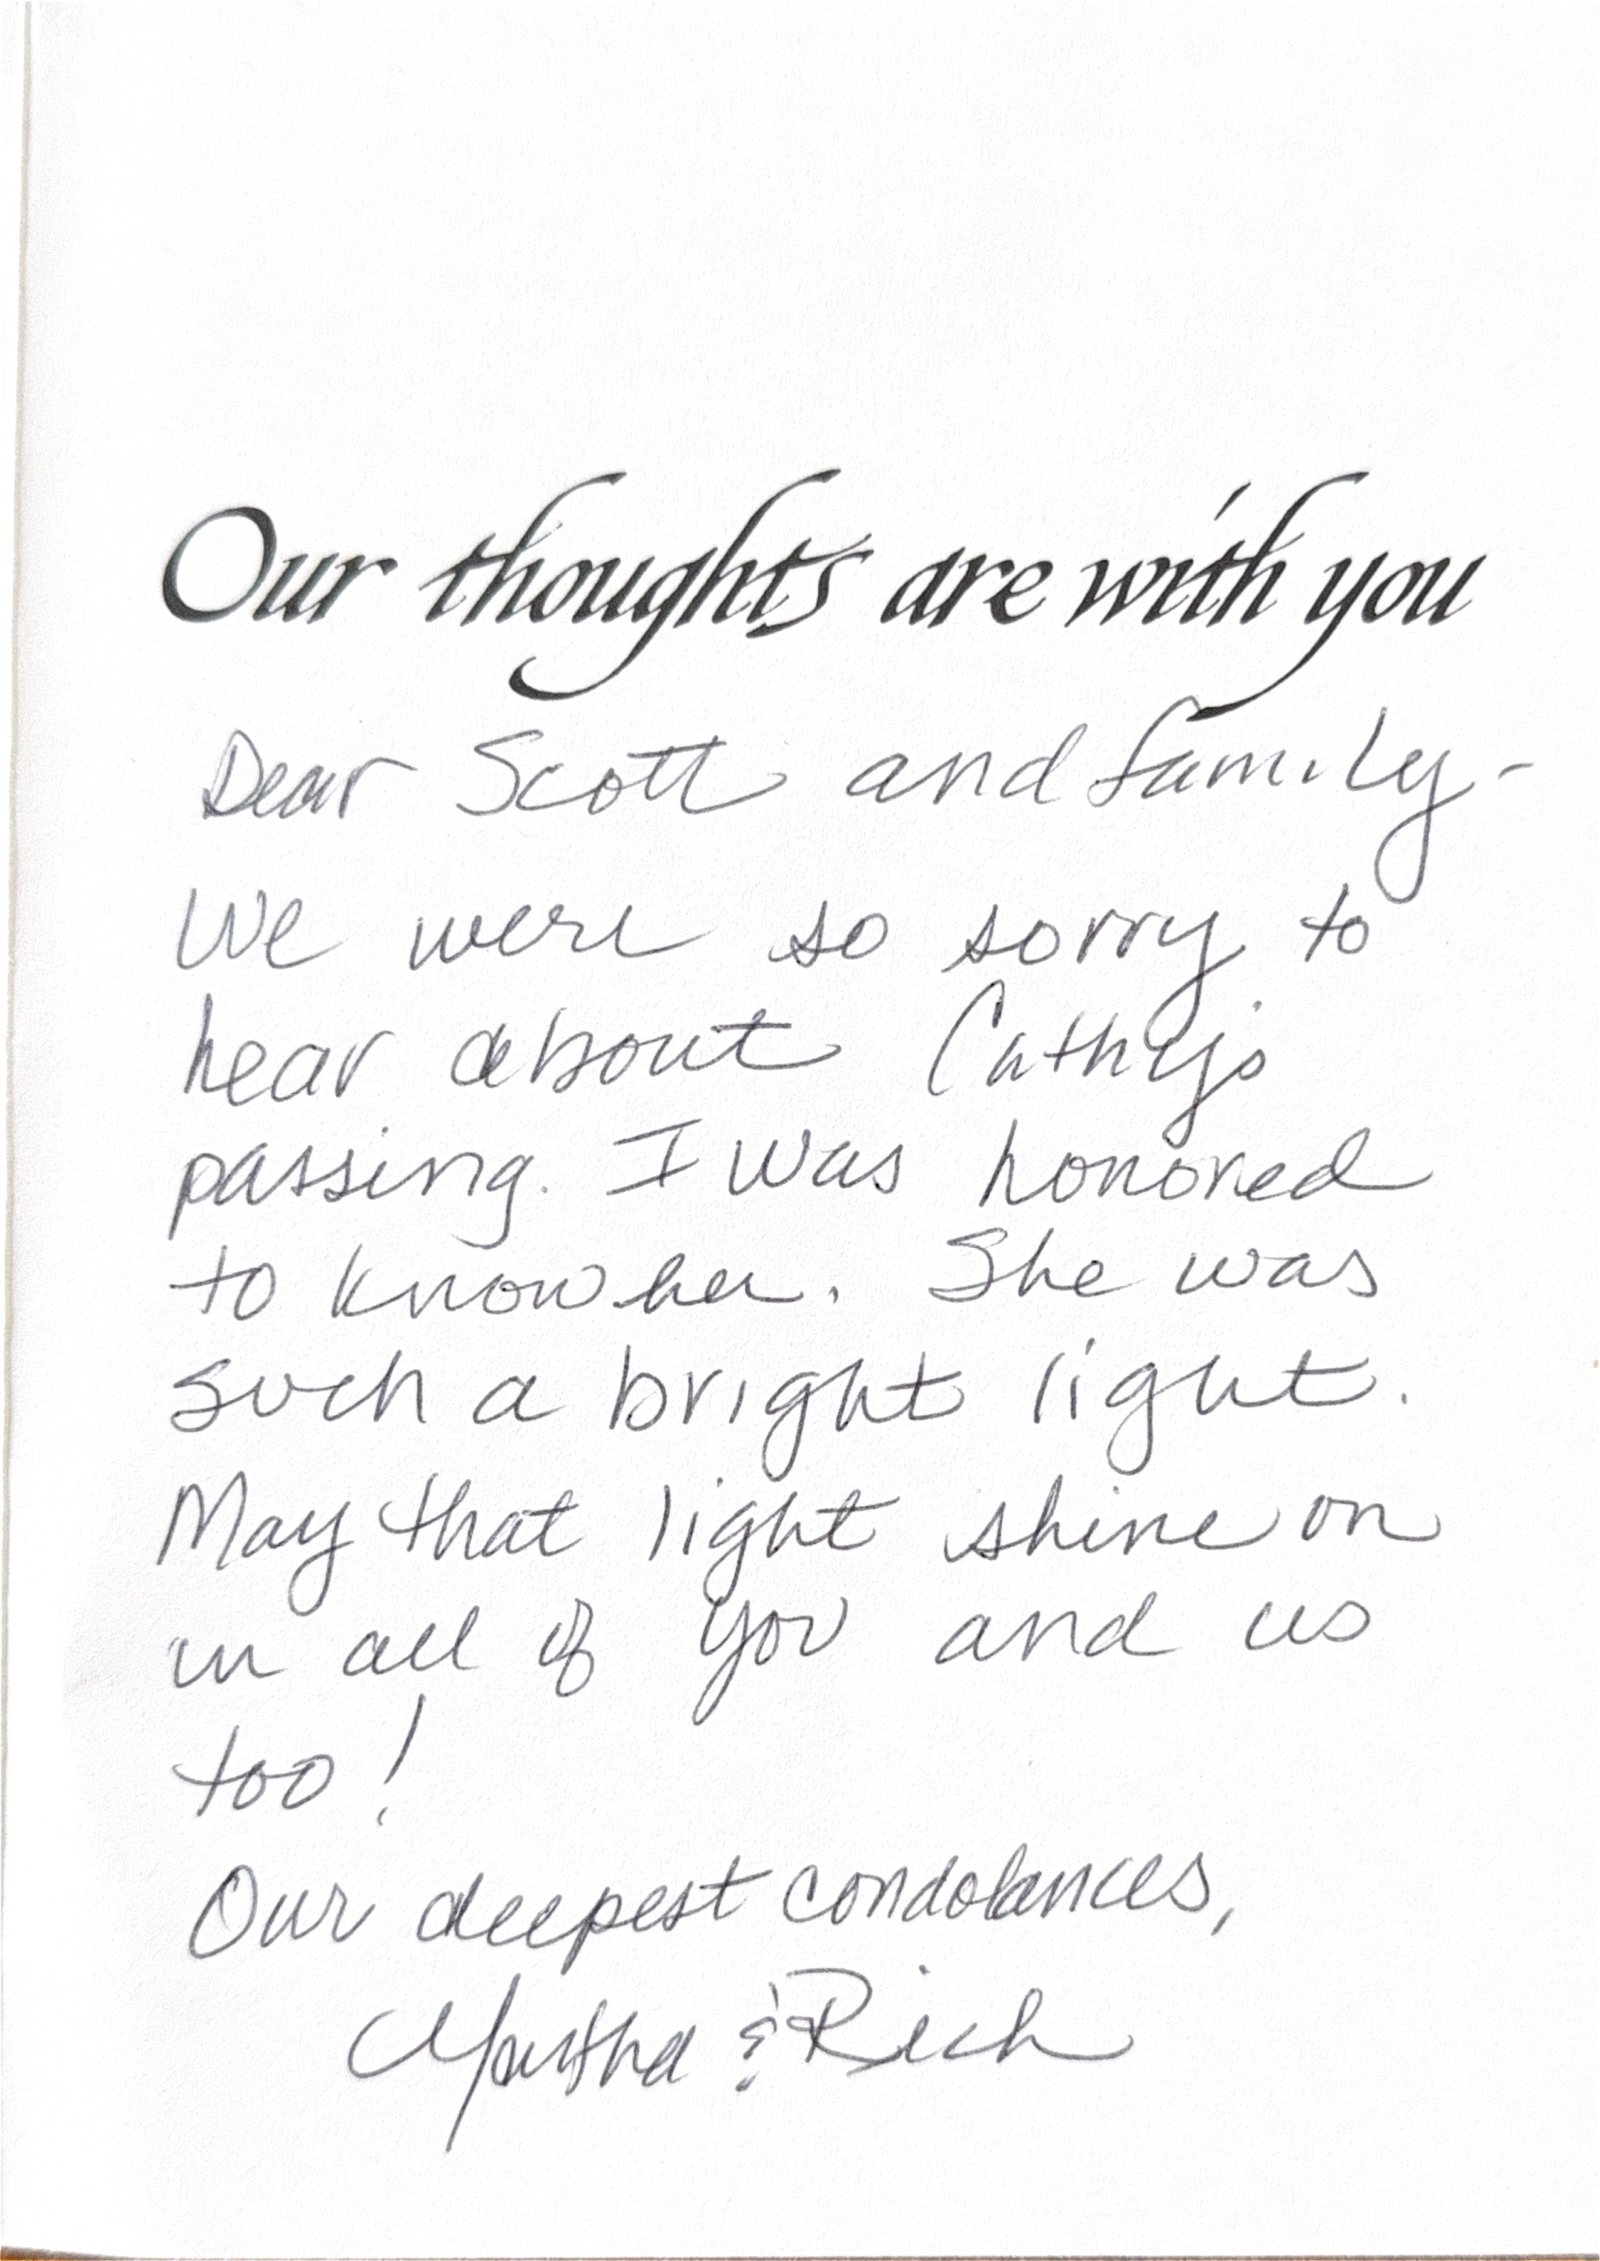 Our thoughts are with you
Dear Scott and family-
We were so sorry to
hear about Cathy's
passing. I was honored
to know her. She was
such a bright light.
May that light shine on
in all of you and us
too!
Our deepest condolances,
Martha & Rich